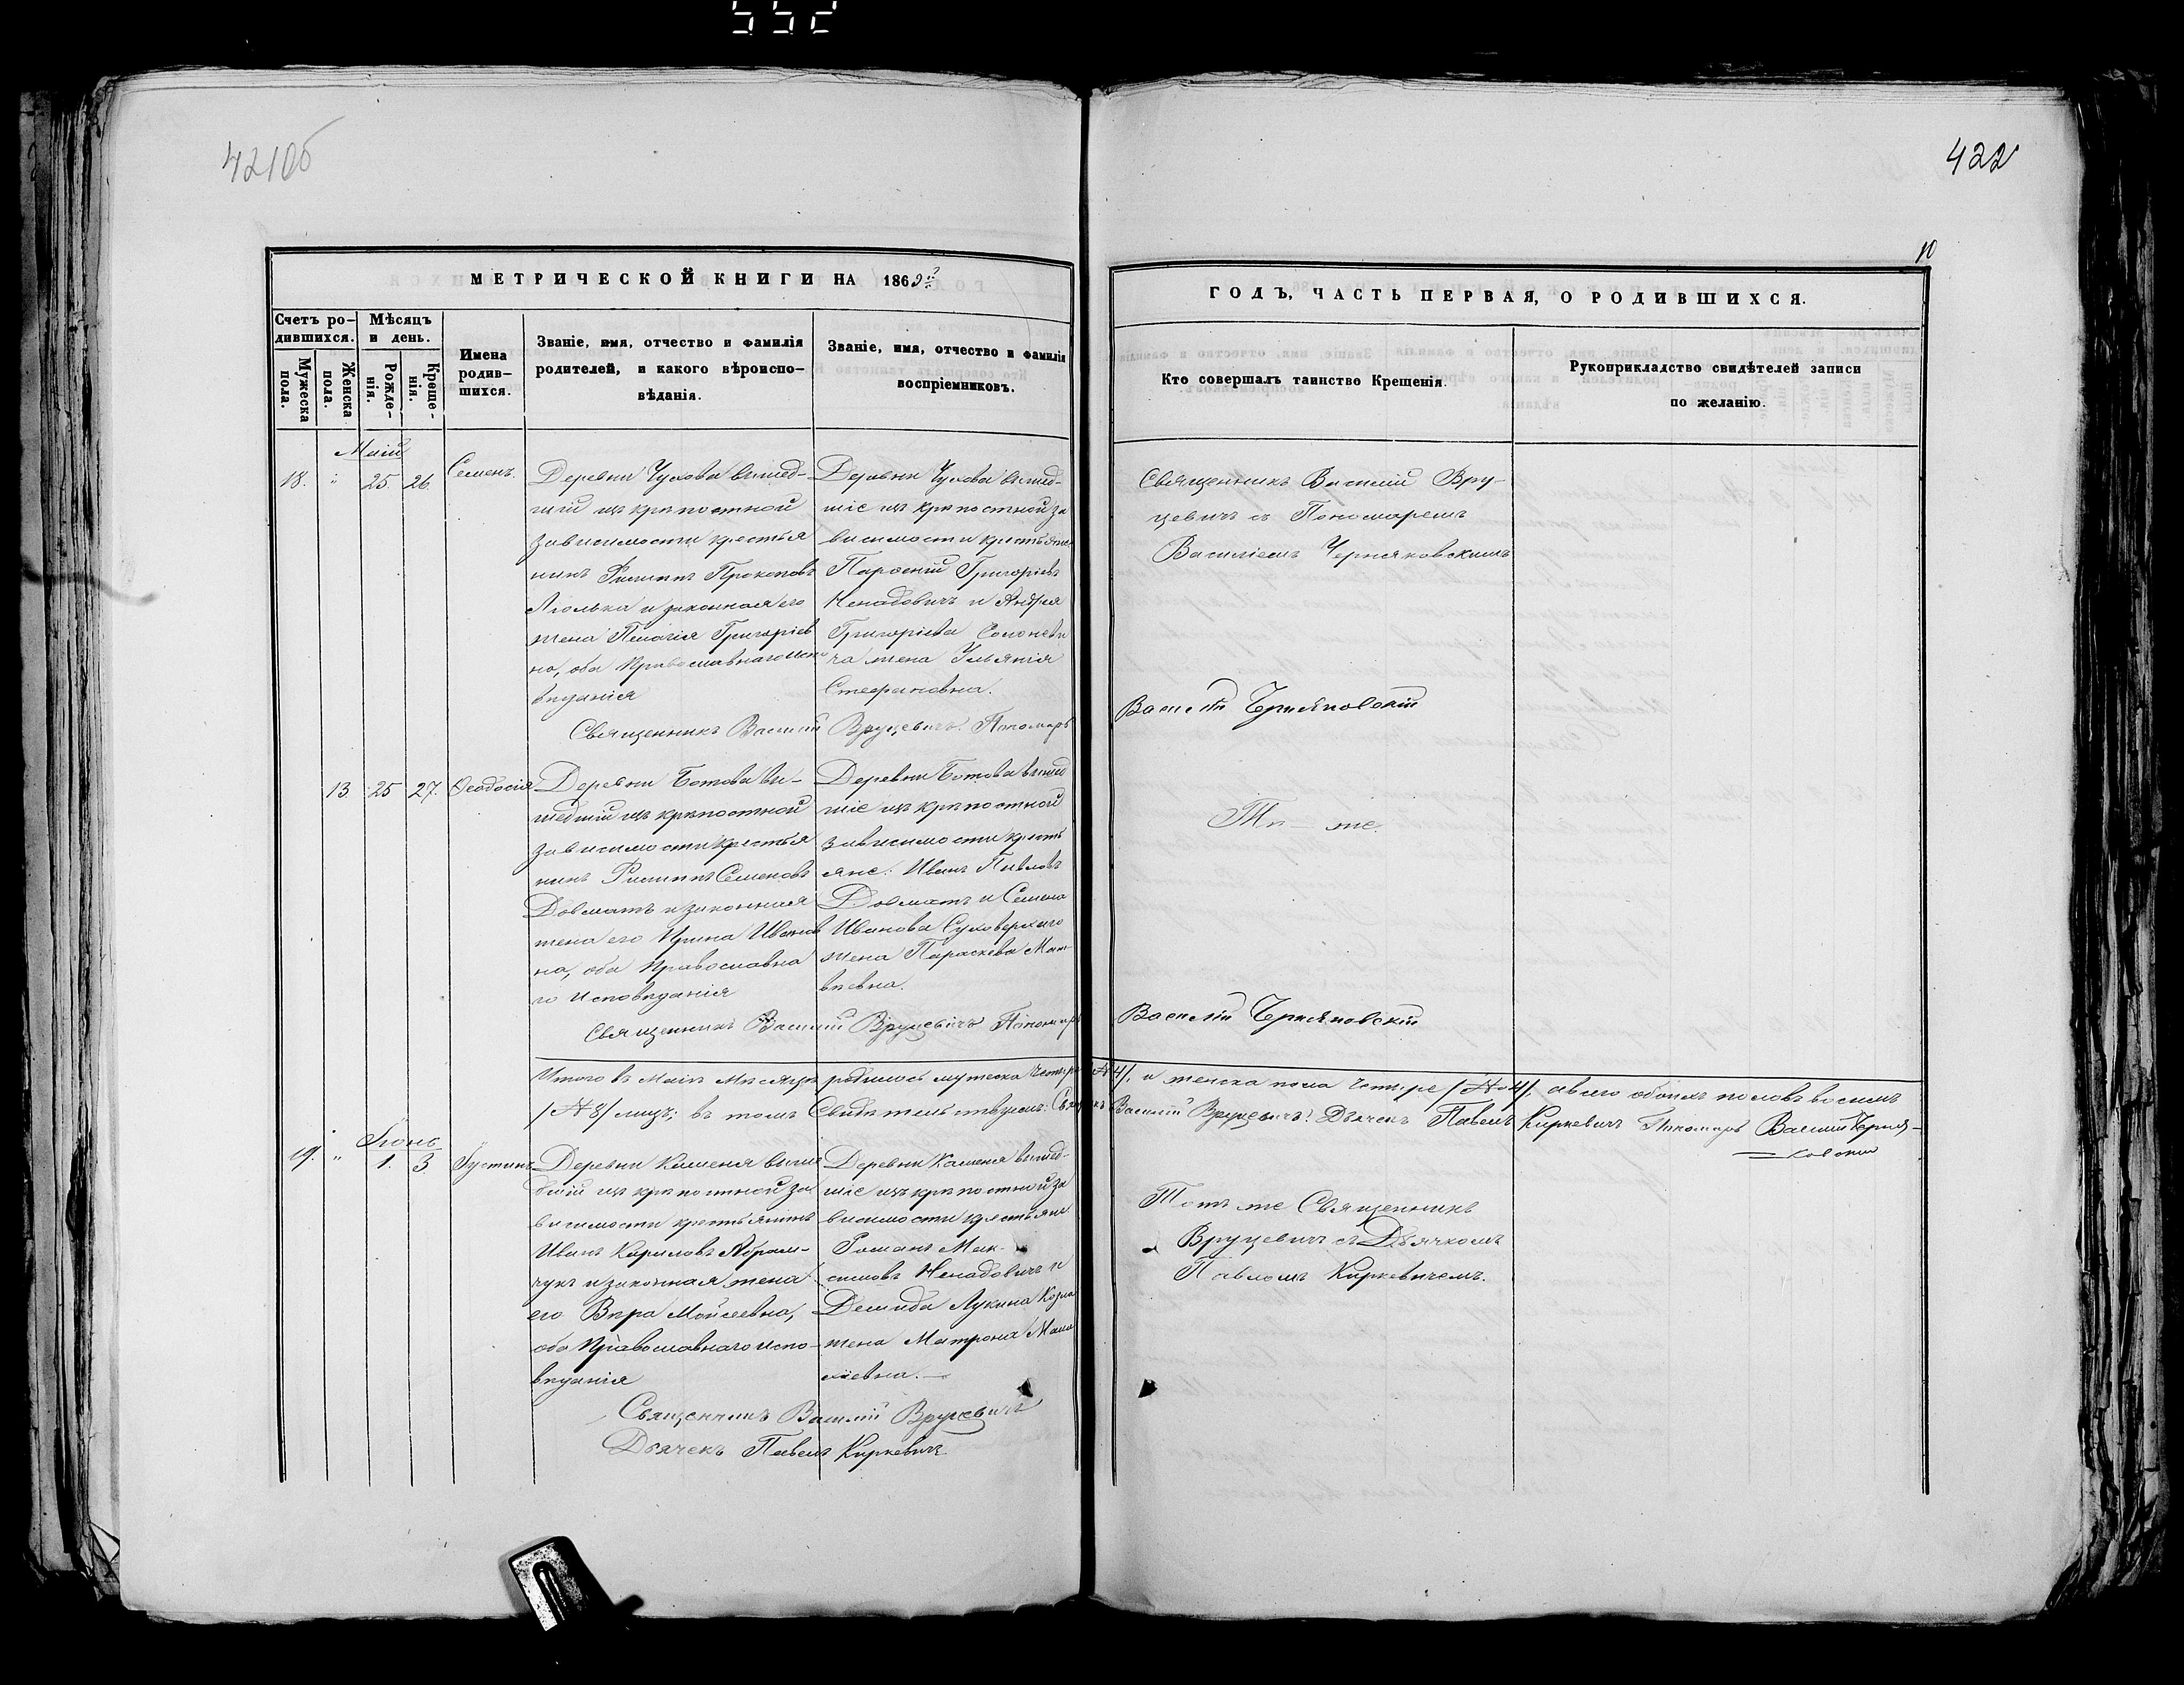 552
421об
422
10
МЕТРИЧЕСКОЙ КНИГИ НА 1869й
ГОДЪ, ЧАСТЬ ПЕРВАЯ, О РОДИВШИХСЯ.
Счетъ ро-
дившихся.
Мужеска
пола.
Женска
пола.
Мѣсяцъ
и день.
Рожде-
нія.
Креще-
нія.
Имена
родив-
шихся.
Званіе, имя, отчество и фамилія
родителей, и какого вѣроиспо-
вѣданія.
Званіе, имя, отчество и фамилія
воспріемниковъ.
Кто совершалъ таинство Крещенія.
Рукоприкладство свидѣтелей записи
по желанію.
Маій
18. " 25. 26. Семенъ.
Деревни Чухова вышед-
шій изъ крѣпостной
зависимости крестья
нинъ Филиппъ Прокоповъ
Люлька и законная его
жена Пелагія Григоріев
на, оба Православнаго испо
вѣданія
Деревни Чухова вышед-
шіе изъ крѣпостной за
висимости крестьяне
Парфеній Григоріевъ
Ненадовичъ и Андрея
Григоріева Солоневи
ча жена Ульянія
Стефановна.
Священникъ Василій Вруцевичъ. Пономарь
Священникъ Василій Вру-
цевичъ съ Пономаремъ
Василіемъ Черняковскимъ
Василій Черняковскій
13. 25 27. Ѳеодосія
Деревни Ботова вы-
шедшій изъ крѣпостной
зависимости крестья
нинъ Филиппъ Семеновъ
Довматъ и законная
жена его Ирина Иванов
на, оба Православна
го исповѣданія
Деревни Ботова вышед
шіе изъ крѣпостной
зависимости кресть
яне: Иванъ Павловъ
Довматъ и Семена
Иванова Суховерхаго
жена Параскева Мат-
вѣевна.
Священникъ Василій Вруцевичъ Пономарь
Тѣ-же.
Василій Черняковскій
Итого въ Маіѣ мѣсяцѣ родилось мужеска четыре /№ 4/, и женска пола четыре /№ 4/, а всего обоихъ половъ восемь
/№ 8/ лицъ; въ томъ Свидѣтельствуемъ: Василій Вруцевичъ. Дьячекъ Павелъ Киркевичъ Пономарь Василій Черня-
ковскій
Іюнь
19. " 1. 3 Іустинъ
Деревни Каменя вышед
шій изъ крѣпостной за
висимости крестьянинъ
Иванъ Кириловъ Абрам-
чукъ и законная жена
его Вѣра Мойсеевна,
оба Православнаго испо-
вѣданія
Деревни Каменя вышед-
шіе изъ крѣпостной за
висимости крестьяне
Романъ Мак-
симовъ Ненадовичъ и
Демида Лукина
жена Матрона
евна.
Священникъ Василій Вруцевичъ
Дьячекъ Павелъ Киркевичъ
Тотъ же Священникъ
Вруцевичъ съ Дьячкомъ
Павломъ Киркевичемъ.